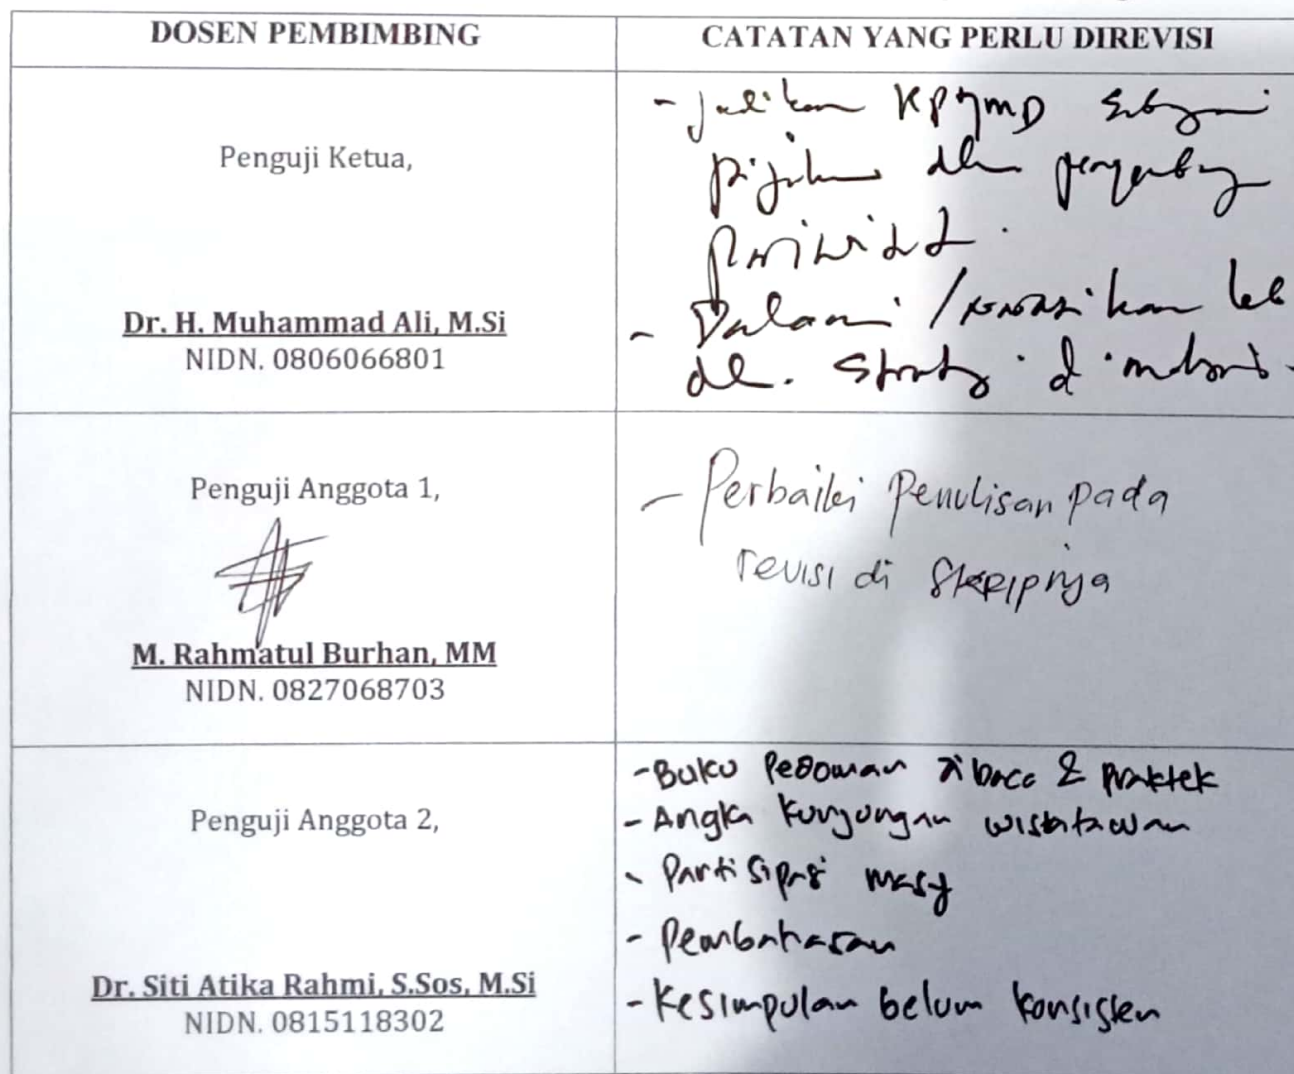 DOSEN PEMBIMBING
CATATAN YANG PERLU DIREVISI
Penguji Ketua,
Dr. H. Muhammad Ali, M.Si
NIDN. 0806066801
- Jadikan sebagai
pijakan dlm
- Dalami /
Penguji Anggota 1,
M. Rahmatul Burhan, MM
NIDN. 0827068703
- Perbaiki Penulisan pada
revisi di
Penguji Anggota 2,
Dr. Siti Atika Rahmi, S.Sos, M.Si
NIDN. 0815118302
- Buku Pedoman dibaca & praktek
- Angka kunjungan wisatawan
- Partisipasi masy
- Pembahasan
- Kesimpulan belum konsisten